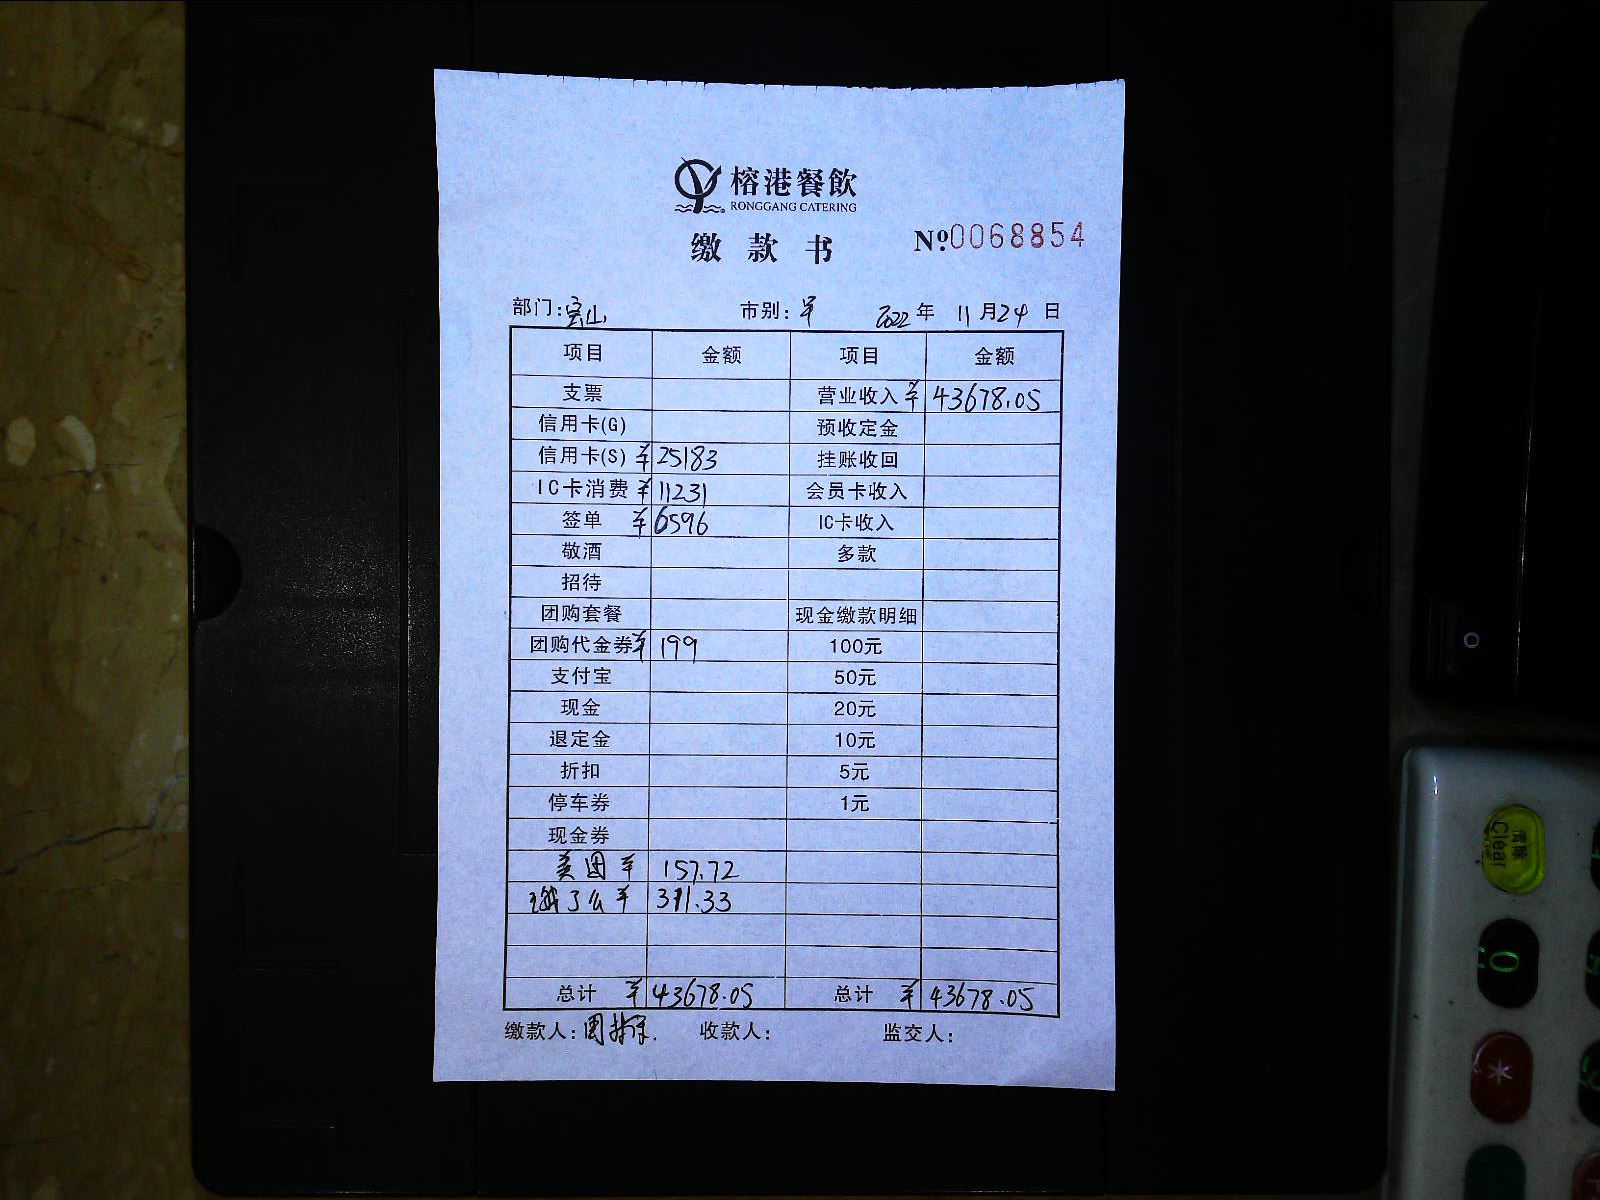 榕港餐飲
RONGGANG CATERING
缴款书 Nº0068854
部门:宝山 市别:早 2022年11月24日
项目 金额 项目 金额
支票 营业收入 ¥43678.05
信用卡(G) 预收定金
信用卡(S) ¥25183 挂账收回
IC卡消费 ¥11231 会员卡收入
签单 ¥6596 IC卡收入
敬酒 多款
招待
团购套餐 现金缴款明细
团购代金券 ¥199 100元
支付宝 50元
现金 20元
退定金 10元
折扣 5元
停车券 1元
现金券
美团 ¥ 157.72
饿了么 ¥ 311.33
总计 ¥43678.05 总计 ¥43678.05
缴款人: 收款人: 监交人:
清除
Clear
0
*